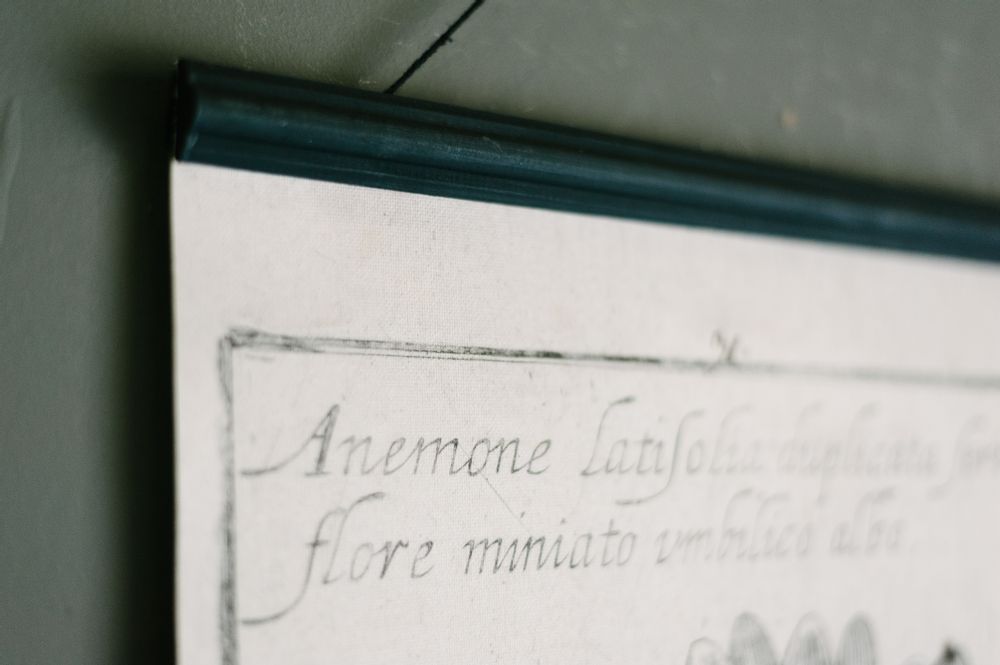 Anemone latifolia duplicata
flore miniato vmbilico albo